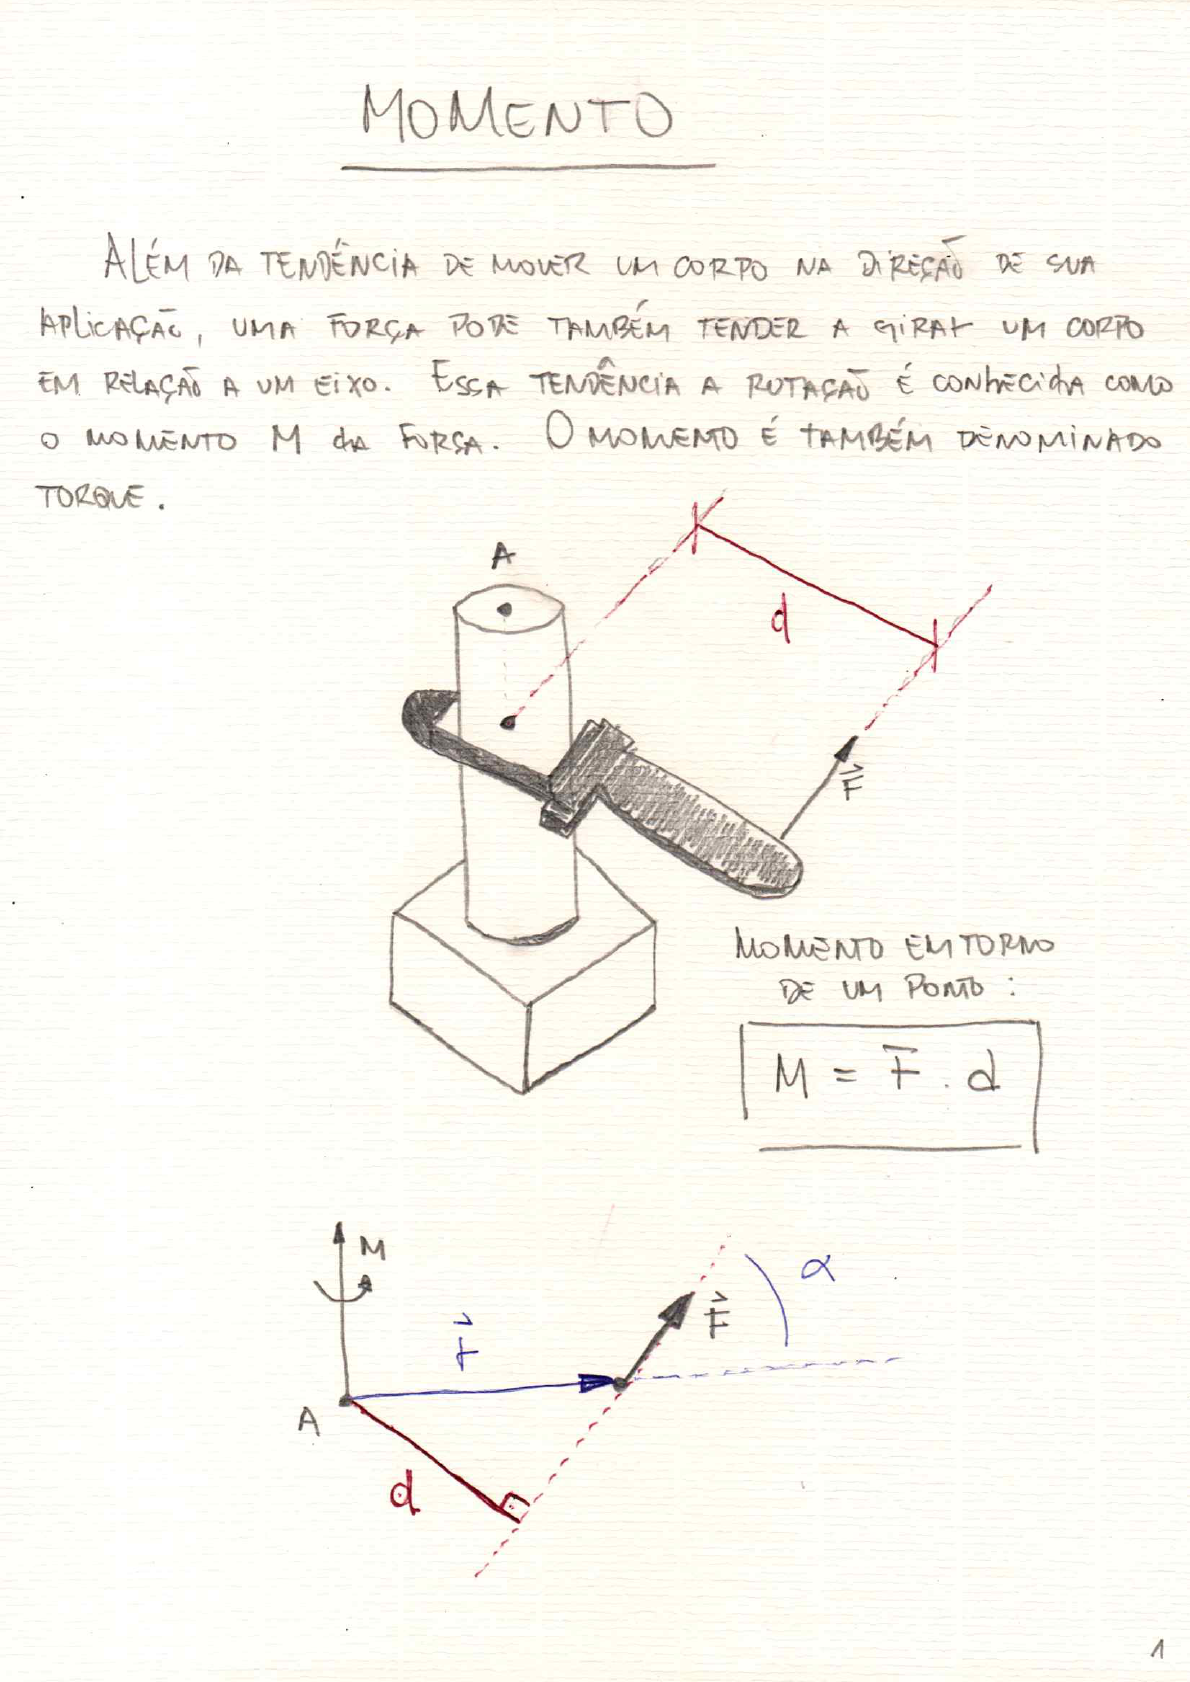 MOMENTO
ALÉM DA TENDÊNCIA DE MOVER UM CORPO NA DIREÇÃO DE SUA
APLICAÇÃO, UMA FORÇA PODE TAMBÉM TENDER A GIRAR UM CORPO
EM RELAÇÃO A UM EIXO. ESSA TENDÊNCIA A ROTAÇÃO É CONHECIDA COMO
O MOMENTO M DA FORÇA. O MOMENTO É TAMBÉM DENOMINADO
TORQUE.
A
d
F⃗
MOMENTO EM TORNO
DE UM PONTO:
M = F̄ . d
M
α
F⃗
r⃗
A
d
1